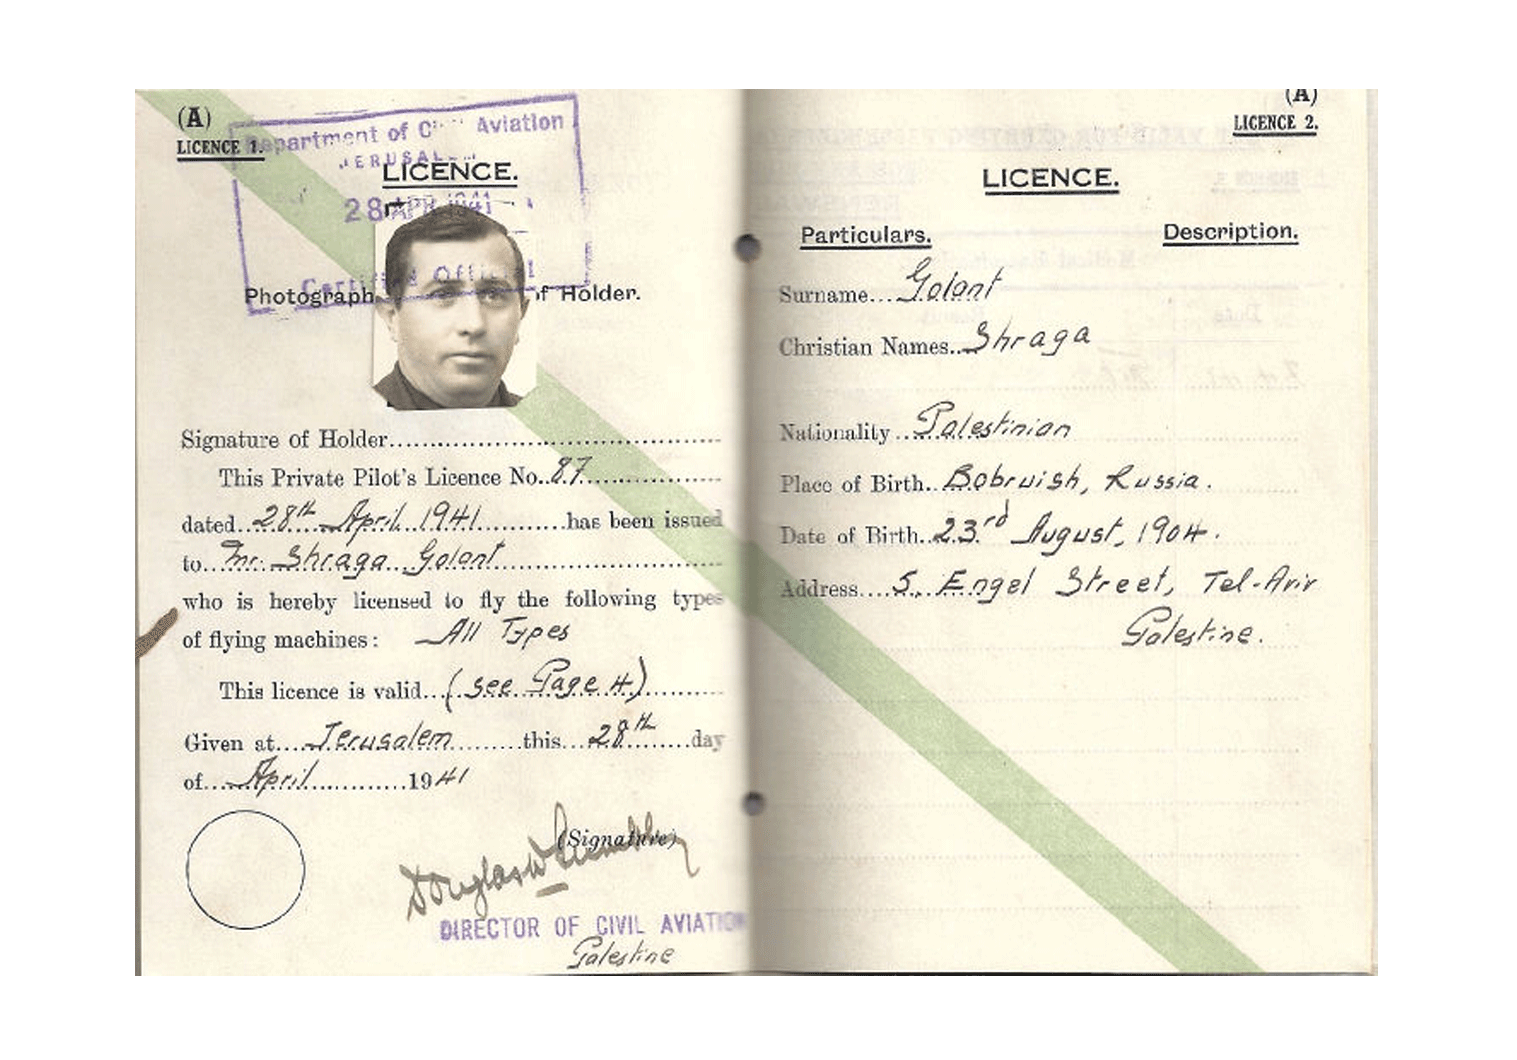 (A)
LICENCE 1.
Department of Civil Aviation
JERUSALEM
28 APR 1941
Certified Official
LICENCE.
Photograph of Holder.
Signature of Holder
This Private Pilot's Licence No. 87
dated 28th April 1941 has been issued
to Mr. Shraga Golant
who is hereby licensed to fly the following types
of flying machines: All Types
This licence is valid (see Page 4)
Given at Jerusalem this 28th day
of April 1941
(Signature)
Douglas W
DIRECTOR OF CIVIL AVIATION
Palestine
(A)
LICENCE 2.
LICENCE.
Particulars. Description.
Surname Golant
Christian Names Shraga
Nationality Palestinian
Place of Birth Bobruish, Russia.
Date of Birth 23rd August, 1904.
Address 5, Engel Street, Tel-Aviv
Palestine.